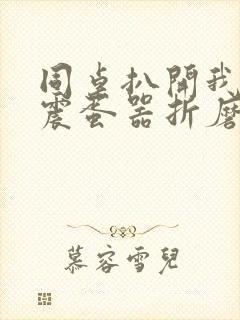 同桌扒開我
震蛋器折磨
慕容雪兒